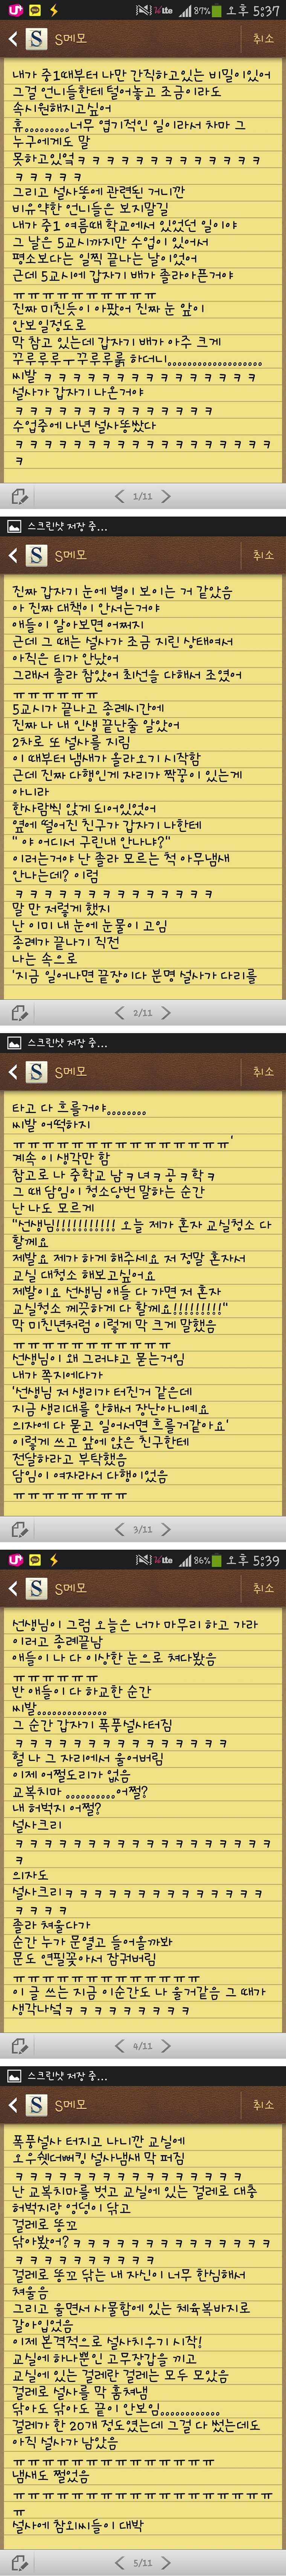 U+ LTE 87% 오후 5:37
S메모 취소
내가 중1때부터 나만 간직하고있는 비밀이있어
그걸 언니들한테 털어놓고 조금이라도
속시원해지고싶어
휴.........너무 엽기적인 일이라서 차마 그
누구에게도 말
못하고있었ㅋㅋㅋㅋㅋㅋㅋㅋㅋㅋㅋㅋㅋ
ㅋㅋㅋㅋㅋ
그리고 설사똥에 관련된 거니깐
비유약한 언니들은 보지말길
내가 중1 여름때 학교에서 있었던 일이야
그 날은 5교시까지만 수업이 있어서
평소보다는 일찍 끝나는 날이었어
근데 5교시에 갑자기 배가 졸라아픈거야
ㅠㅠㅠㅠㅠㅠㅠㅠㅠㅠ
진짜 미친듯이 아팠어 진짜 눈 앞이
안보일정도로
막 참고 있는데 갑자기 배가 아주 크게
꾸루루루ㅜ꾸루루룱 하더니...................
씨발 ㅋㅋㅋㅋㅋㅋㅋㅋㅋㅋㅋㅋㅋㅋㅋ
설사가 갑자기 나온거야
ㅋㅋㅋㅋㅋㅋㅋㅋㅋㅋㅋㅋㅋㅋ
수업중에 나년 설사똥쌌다
ㅋㅋㅋㅋㅋㅋㅋㅋㅋㅋㅋㅋㅋㅋㅋㅋㅋㅋ
ㅋ
1/11
스크린샷 저장 중...
S메모 취소
진짜 갑자기 눈에 별이 보이는 거 같았음
아 진짜 대책이 안서는거야
애들이 알아보면 어쩌지
근데 그 때는 설사가 조금 지린 상태여서
아직은 티가 안났어
그래서 졸라 참았어 최선을 다해서 조였어
ㅠㅠㅠㅠㅠㅠ
5교시가 끝나고 종례시간에
진짜 나 내 인생 끝난줄 알았어
2차로 또 설사를 지림
이 때부터 냄새가 올라오기 시작함
근데 진짜 다행인게 자리가 짝꿍이 있는게
아니라
한사람씩 앉게 되어있었어
옆에 떨어진 친구가 갑자기 나한테
" 야 어디서 구린내 안나냐?"
이러는거야 난 졸라 모르는 척 아무냄새
안나는데? 이럼
ㅋㅋㅋㅋㅋㅋㅋㅋㅋㅋㅋㅋㅋㅋ
말 만 저렇게 했지
난 이미 내 눈에 눈물이 고임
종례가 끝나기 직전
나는 속으로
'지금 일어나면 끝장이다 분명 설사가 다리를
2/11
스크린샷 저장 중...
S메모 취소
타고 다 흐를거야........
씨발 어떡하지
ㅠㅠㅠㅠㅠㅠㅠㅠㅠㅠㅠㅠㅠㅠㅠ'
계속 이 생각만 함
참고로 나 중학교 남ㅋ녀ㅋ공ㅋ학ㅋ
그 때 담임이 청소당번 말하는 순간
난 나도 모르게
"선생님!!!!!!!!!!! 오늘 제가 혼자 교실청소 다
할께요
제발요 제가 하게 해주세요 저 정말 혼자서
교실 대청소 해보고싶어요
제발이요 선생님 애들 다 가면 저 혼자
교실청소 께끗하게 다 할께요!!!!!!!!!"
막 미친년처럼 이렇게 막 크게 말했음
ㅠㅠㅠㅠㅠㅠㅠㅠㅠㅠㅠ
선생님이 왜 그러냐고 묻는거임
내가 쪽지에다가
'선생님 저 생리가 터진거 같은데
지금 생리대를 안해서 장난아니예요
의자에 다 묻고 일어서면 흐를거같아요'
이렇게 쓰고 앞에 앉은 친구한테
전달하라고 부탁했음
담임이 여자라서 다행이었음
ㅠㅠㅠㅠㅠㅠㅠㅠ
3/11
U+ LTE 86% 오후 5:39
S메모 취소
선생님이 그럼 오늘은 너가 마무리 하고 가라
이러고 종례끝남
애들이 나 다 이상한 눈으로 쳐다봤음
ㅠㅠㅠㅠㅠㅠ
반 애들이 다 하교한 순간
씨발..............
그 순간 갑자기 폭풍설사터짐
ㅋㅋㅋㅋㅋㅋㅋㅋㅋㅋㅋㅋㅋㅋㅋ
헐 나 그 자리에서 울어버림
이제 어쩔도리가 없음
교복치마 ..........어쩔?
내 허벅지 어쩔?
설사크리
ㅋㅋㅋㅋㅋㅋㅋㅋㅋㅋㅋㅋㅋㅋㅋㅋㅋㅋ
ㅋ
의자도
설사크리ㅋㅋㅋㅋㅋㅋㅋㅋㅋㅋㅋㅋㅋㅋ
ㅋㅋㅋㅋ
졸라 쳐울다가
순간 누가 문열고 들어올까봐
문도 연필꽂아서 잠궈버림
ㅠㅠㅠㅠㅠㅠㅠㅠㅠㅠㅠㅠㅠ
이 글 쓰는 지금 이순간도 나 울거같음 그 때가
생각나섴ㅋㅋㅋㅋㅋㅋㅋㅋㅋ
4/11
스크린샷 저장 중...
S메모 취소
폭풍설사 터지고 나니깐 교실에
오우쉣더뻐킹 설사냄새 막 퍼짐
ㅋㅋㅋㅋㅋㅋㅋㅋㅋㅋㅋㅋㅋㅋㅋㅋ
난 교복치마를 벗고 교실에 있는 걸레로 대충
허벅지랑 엉덩이 닦고
걸레로 똥꼬
닦아봤어?ㅋㅋㅋㅋㅋㅋㅋㅋㅋㅋㅋㅋㅋㅋ
ㅋㅋㅋㅋㅋㅋㅋㅋㅋㅋ
걸레로 똥꼬 닦는 내 자신이 너무 한심해서
쳐울음
그리고 울면서 사물함에 있는 체육복바지로
갈아입었음
이제 본격적으로 설사치우기 시작!
교실에 하나뿐인 고무장갑을 끼고
교실에 있는 걸레란 걸레는 모두 모았음
걸레로 설사를 막 훔쳐냄
닦아도 닦아도 끝이 안보임............
걸레가 한 20개 정도였는데 그걸 다 썼는데도
아직 설사가 남았음
ㅠㅠㅠㅠㅠㅠㅠㅠㅠㅠㅠㅠㅠㅠ
냄새도 쩔었음
ㅠㅠㅠㅠㅠㅠㅠㅠㅠㅠㅠㅠㅠㅠㅠㅠㅠㅠ
ㅠ
설사에 참외씨들이 대박
5/11